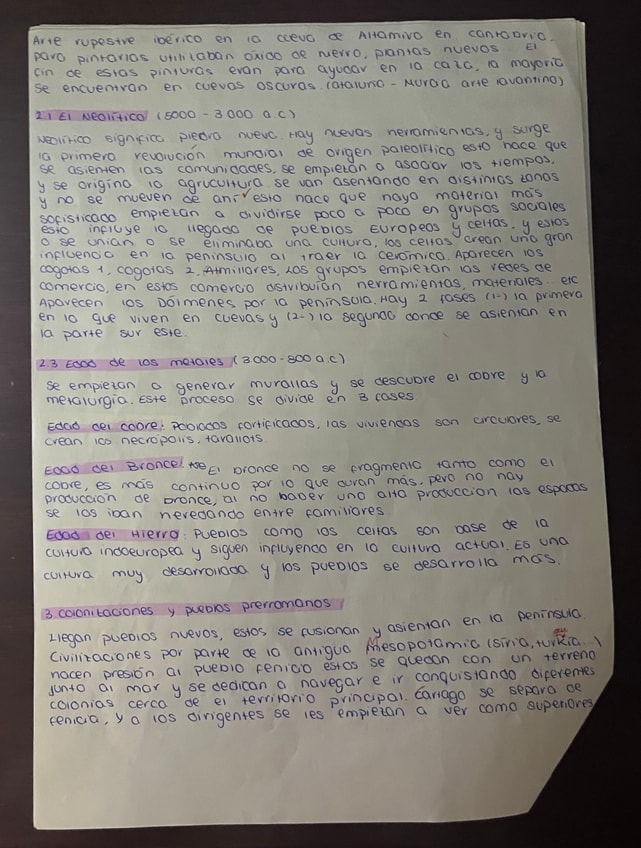 Arte rupestre ibérico en la cueva de Altamira en cantabria.
para pintarlas utilizaban óxido de hierro, plantas huevos... El
fin de estas pinturas eran para ayudar en la caza, la mayoría
se encuentran en cuevas oscuras. (cataluña - Murcia arte lavantino)
2.1 El Neolítico (5000 - 3000 a.c)
Neolítico significa piedra nueva. Hay nuevas herramientas, y surge
la primera revolución mundial de origen paleolítico esto hace que
se asienten las comunidades, se empiezan a asociar los tiempos,
y se origina la agrucultura. se van asentando en distintas zonas
y no se mueven de ahí esto hace que haya material más
sofisticado empiezan a dividirse poco a poco en grupos sociales
esto influye la llegada de pueblos Europeos y celtas, y estos
o se unían o se eliminaba una cultura, los celtas crean una gran
influencia en la península al traer la cerámica. Aparecen los
cogotas 1, cogotas 2, Almillares, Los grupos empiezan las redes de
comercio, en estos comercio distribuían herramientas, materiales... etc
Aparecen los Dólmenes por la península. Hay 2 fases (1-) la primera
en la que viven en cuevas y (2-) la segunda donde se asientan en
la parte sur este.
2.3 Edad de los metales (3.000 - 800 a.c)
Se empiezan a generar murallas y se descubre el cobre y la
metalurgia. Este proceso se divide en 3 fases
Edad del cobre: Poblados fortificados, las viviendas son circulares, se
crean las necrópolis, taraliots.
Edad del Bronce: El bronce no se fragmenta tanto como el
cobre, es más continuo por lo que duran más, pero no hay
producción de bronce, al no haber una alta producción las espadas
se las iban heredando entre familiares.
Edad del Hierro: Pueblos como los celtas son base de la
cultura indoeuropea y siguen influyendo en la cultura actual. Es una
cultura muy desarrollada y los pueblos se desarrolla más.
3. colonizaciones y pueblos prerromanos
Llegan pueblos nuevos, estos se fusionan y asientan en la península.
Civilizaciones por parte de la antigua Mesopotamia (siria, turquía...)
hacen presión al pueblo fenicio estos se quedan con un terreno
junto al mar y se dedican a navegar e ir conquistando diferentes
colonias cerca de el territorio principal. Cartago se separa de
fenicia, y a los dirigentes se les empiezan a ver como superiores